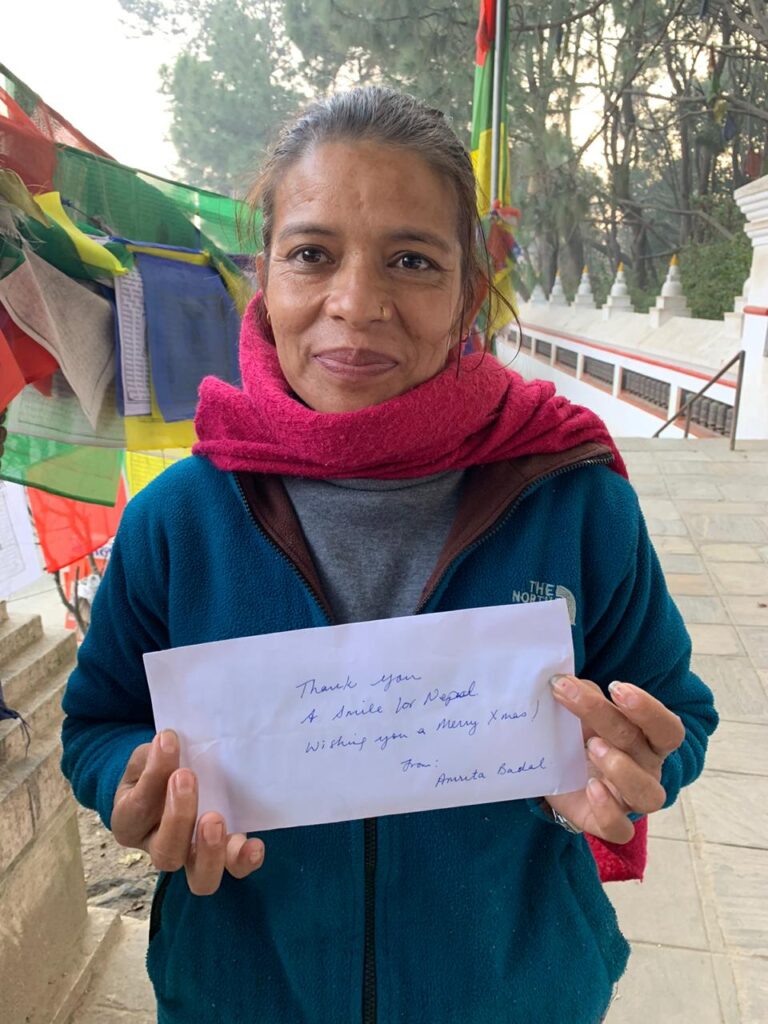 THE
NORTH
Thank you
A Smile for Nepal
Wishing you a Merry Xmas!
From:
Amrita Badal